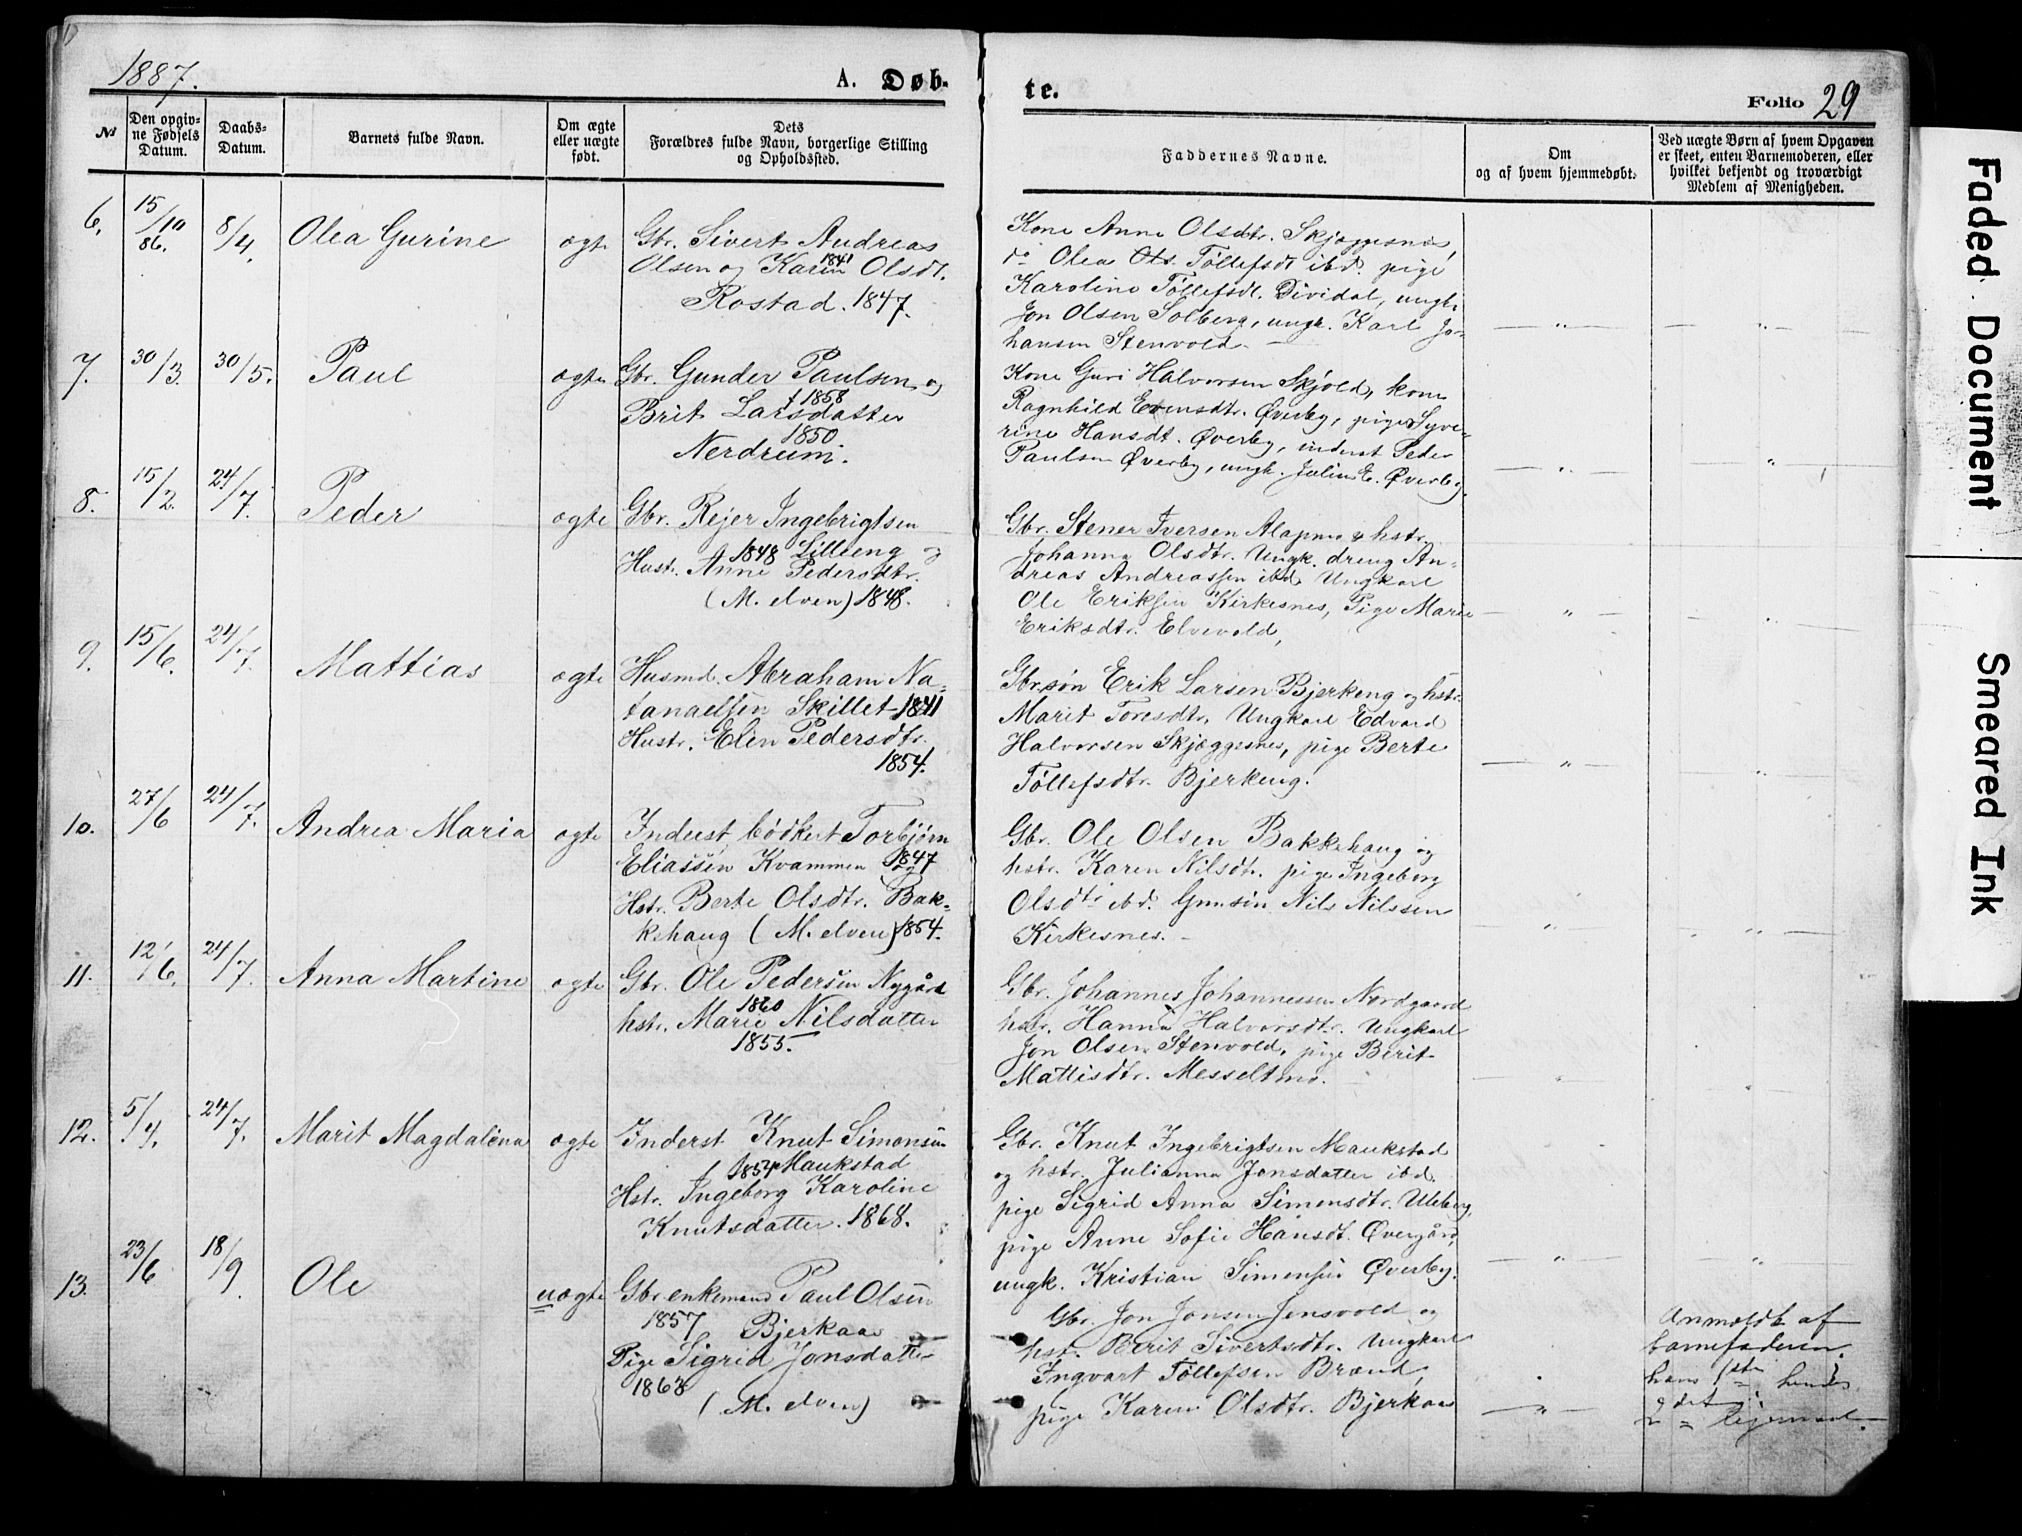 1887.
A. Døb-
№
Den opgiv=
ne Fødsels
Datum.
Daabs=
Datum.
Barnets fulde Navn.
Om ægte
eller uægte
født.
Dets
Forældres fulde Navn, borgerlige Stilling
og Opholdssted.
6.
15/10
86.
8/4.
Olea Gurine
ægte
Gbr. Sivert Andreas
1841
Olsen og Karen Olsdt.
Rostad. 1847.
7.
30/3.
30/5.
Paul
ægte
Gbr. Gunder Paulsen og
1858
Brit Larsdatter
1850
Nerdrum.
8.
15/2.
24/7.
Peder
ægte
Gbr. Rejer Ingebrigtsen
1848 Lilleeng og
Hust. Anne Pedersdtr.
(M. elven) 1848.
9.
15/6.
24/7.
Mattias
ægte
Husmd. Abraham Na=
tanaelsen Skillet 1841
Hustr. Elen Pedersdtr.
1854.
10.
27/6
24/7.
Andrea Maria
ægte
Inderst, bødker Torbjørn
Eliassen Kvammen og 1847
Hstr. Berte Olsdtr. Bak=
kehaug (M. elven) 1854.
11.
12/6.
24/7.
Anna Martine
ægte
Gbr. Ole Pedersen Nygård
1860
hstr. Marie Nilsdatter
1855.
12.
5/4.
24/7.
Marit Magdalena
ægte
Inderst Knut Simonsen
1854 Maukstad
Hstr. Ingeborg Karoline
Knutsdatter. 1868.
13.
23/6
18/9.
Ole
uægte
Gbr enkemand Paul Olsen
1857 Bjerkaas
Pige Sigrid Jonsdatter
1863
(M. elven)
te.
Folio 29
Faddernes Navne.
Om
og af hvem hjemmedøbt.
Ved uægte Børn af hvem Opgaven
er skeet, enten Barnemoderen, eller
hvilket bekjendt og troværdigt
Medlem af Menigheden.
Kone Anne Olsdtr. Skjæggesnes,
do Olea Ols. Tøllefsdt ibd. pige
Karoline Tøllefsdt. Dividal, ungk.
Jon Olsen Solberg, ungk. Karl Jo-
hansen Stenvold.
Kone Guri Halvorsen Skjold, kone
Ragnhild Evensdtr. Øverby, pige Syve-
rine Hansdt. Øverby, inderst Peder
Paulsen Øverby, ungk. Julius E. Øverby.
Gbr. Stener Iversen Alapmo & hstr.
Johanna Olsdtr. Ungk. dreng An=
dreas Andreassen ibd. Ungkarl
Ole Eriksen Kirkesnes, Pige Marie
Eriksdtr. Elvevold,
Gbr.søn Erik Larsen Bjerkeng og hstr.
Marit Toresdtr. Ungkarl Edvard
Halvorsen Skjæggesnes, pige Berte
Tøllefsdtr. Bjerkeng.
Gbr. Ole Olsen Bakkehaug og
hstr. Karen Nilsdtr. pige Ingeborg
Olsdtr ibd. Nils Nilssen
Kirkesnes.
Gbr. Johannes Johannessen Nordgaard
hstr. Hanna Halvorsdtr. Ungkarl
Jon Olsen Stenvold, pige Berit
Mattisdtr. Messeltmo.
Gbr. Knut Ingebrigtsen Maukstad
og hstr. Julianna Jonsdatter ibd.
pige Sigrid Anna Simonsdtr. Uleberg,
pige Anne Sofie Hansdt. Øvergård,
ungk. Kristian Simonsen Øverby.
Gbr. Jon Jonsen Jensvold og
hstr. Berit Sivertsdtr. Ungkarl
Ingvart Tøllefsen Brænd,
pige Karen Olsdtr. Bjerkaas
Anmeldt af
barnefaderen.
hans 1ste hendes
2det lejermaal.
Faded Document
Smeared Ink